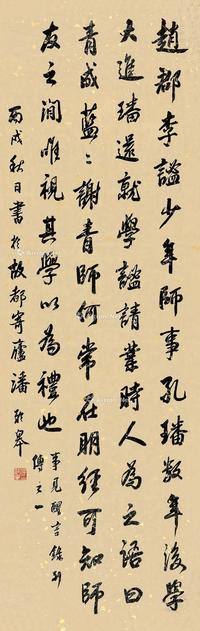 趙郡李謐少年師事孔璠數年後學
大進璠還就學謐請業時人為之語曰
青成藍藍謝青師何常在明經可知師
友之間唯視其學以為禮也
事見醒言錄外
傳之一
丙戌秋日書於故都寄廬潘齡皋